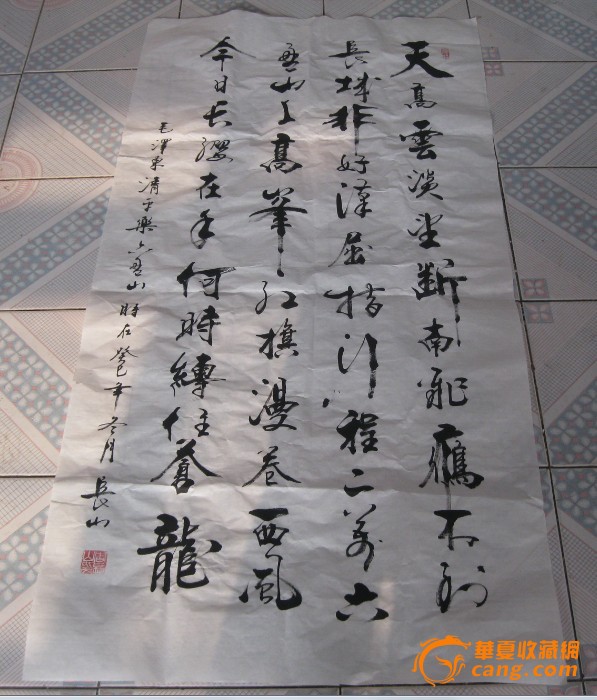 天高雲淡望斷南飛鷹不到
長城非好漢屈指行程二萬六
盤山上高峯紅旗漫卷西風
今日長纓在手何時縛住蒼龍
毛澤東清平樂六盤山時在癸巳年冬月長山
華夏收藏網
cang.com